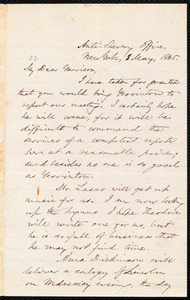 Anti-Slavery Office,
New York, 3 May, 1865.
My Dear Garrison,
I have taken for granted
that you would bring Yerrinton to
report our meetings. I certainly hope
he will come, for it will be
difficult to command the
services of a competent reporter
here at a reasonable price,
and besides no one is so good
as Yerrinton.
Mr. Lasar will get up
music for us. I am now looking
up the hymns. I hope Theodore
will write one for us, but
he is so full of business that
he may not find time.
Anna Dickinson will
deliver a eulogy of Lincoln
on Wednesday evening, the day